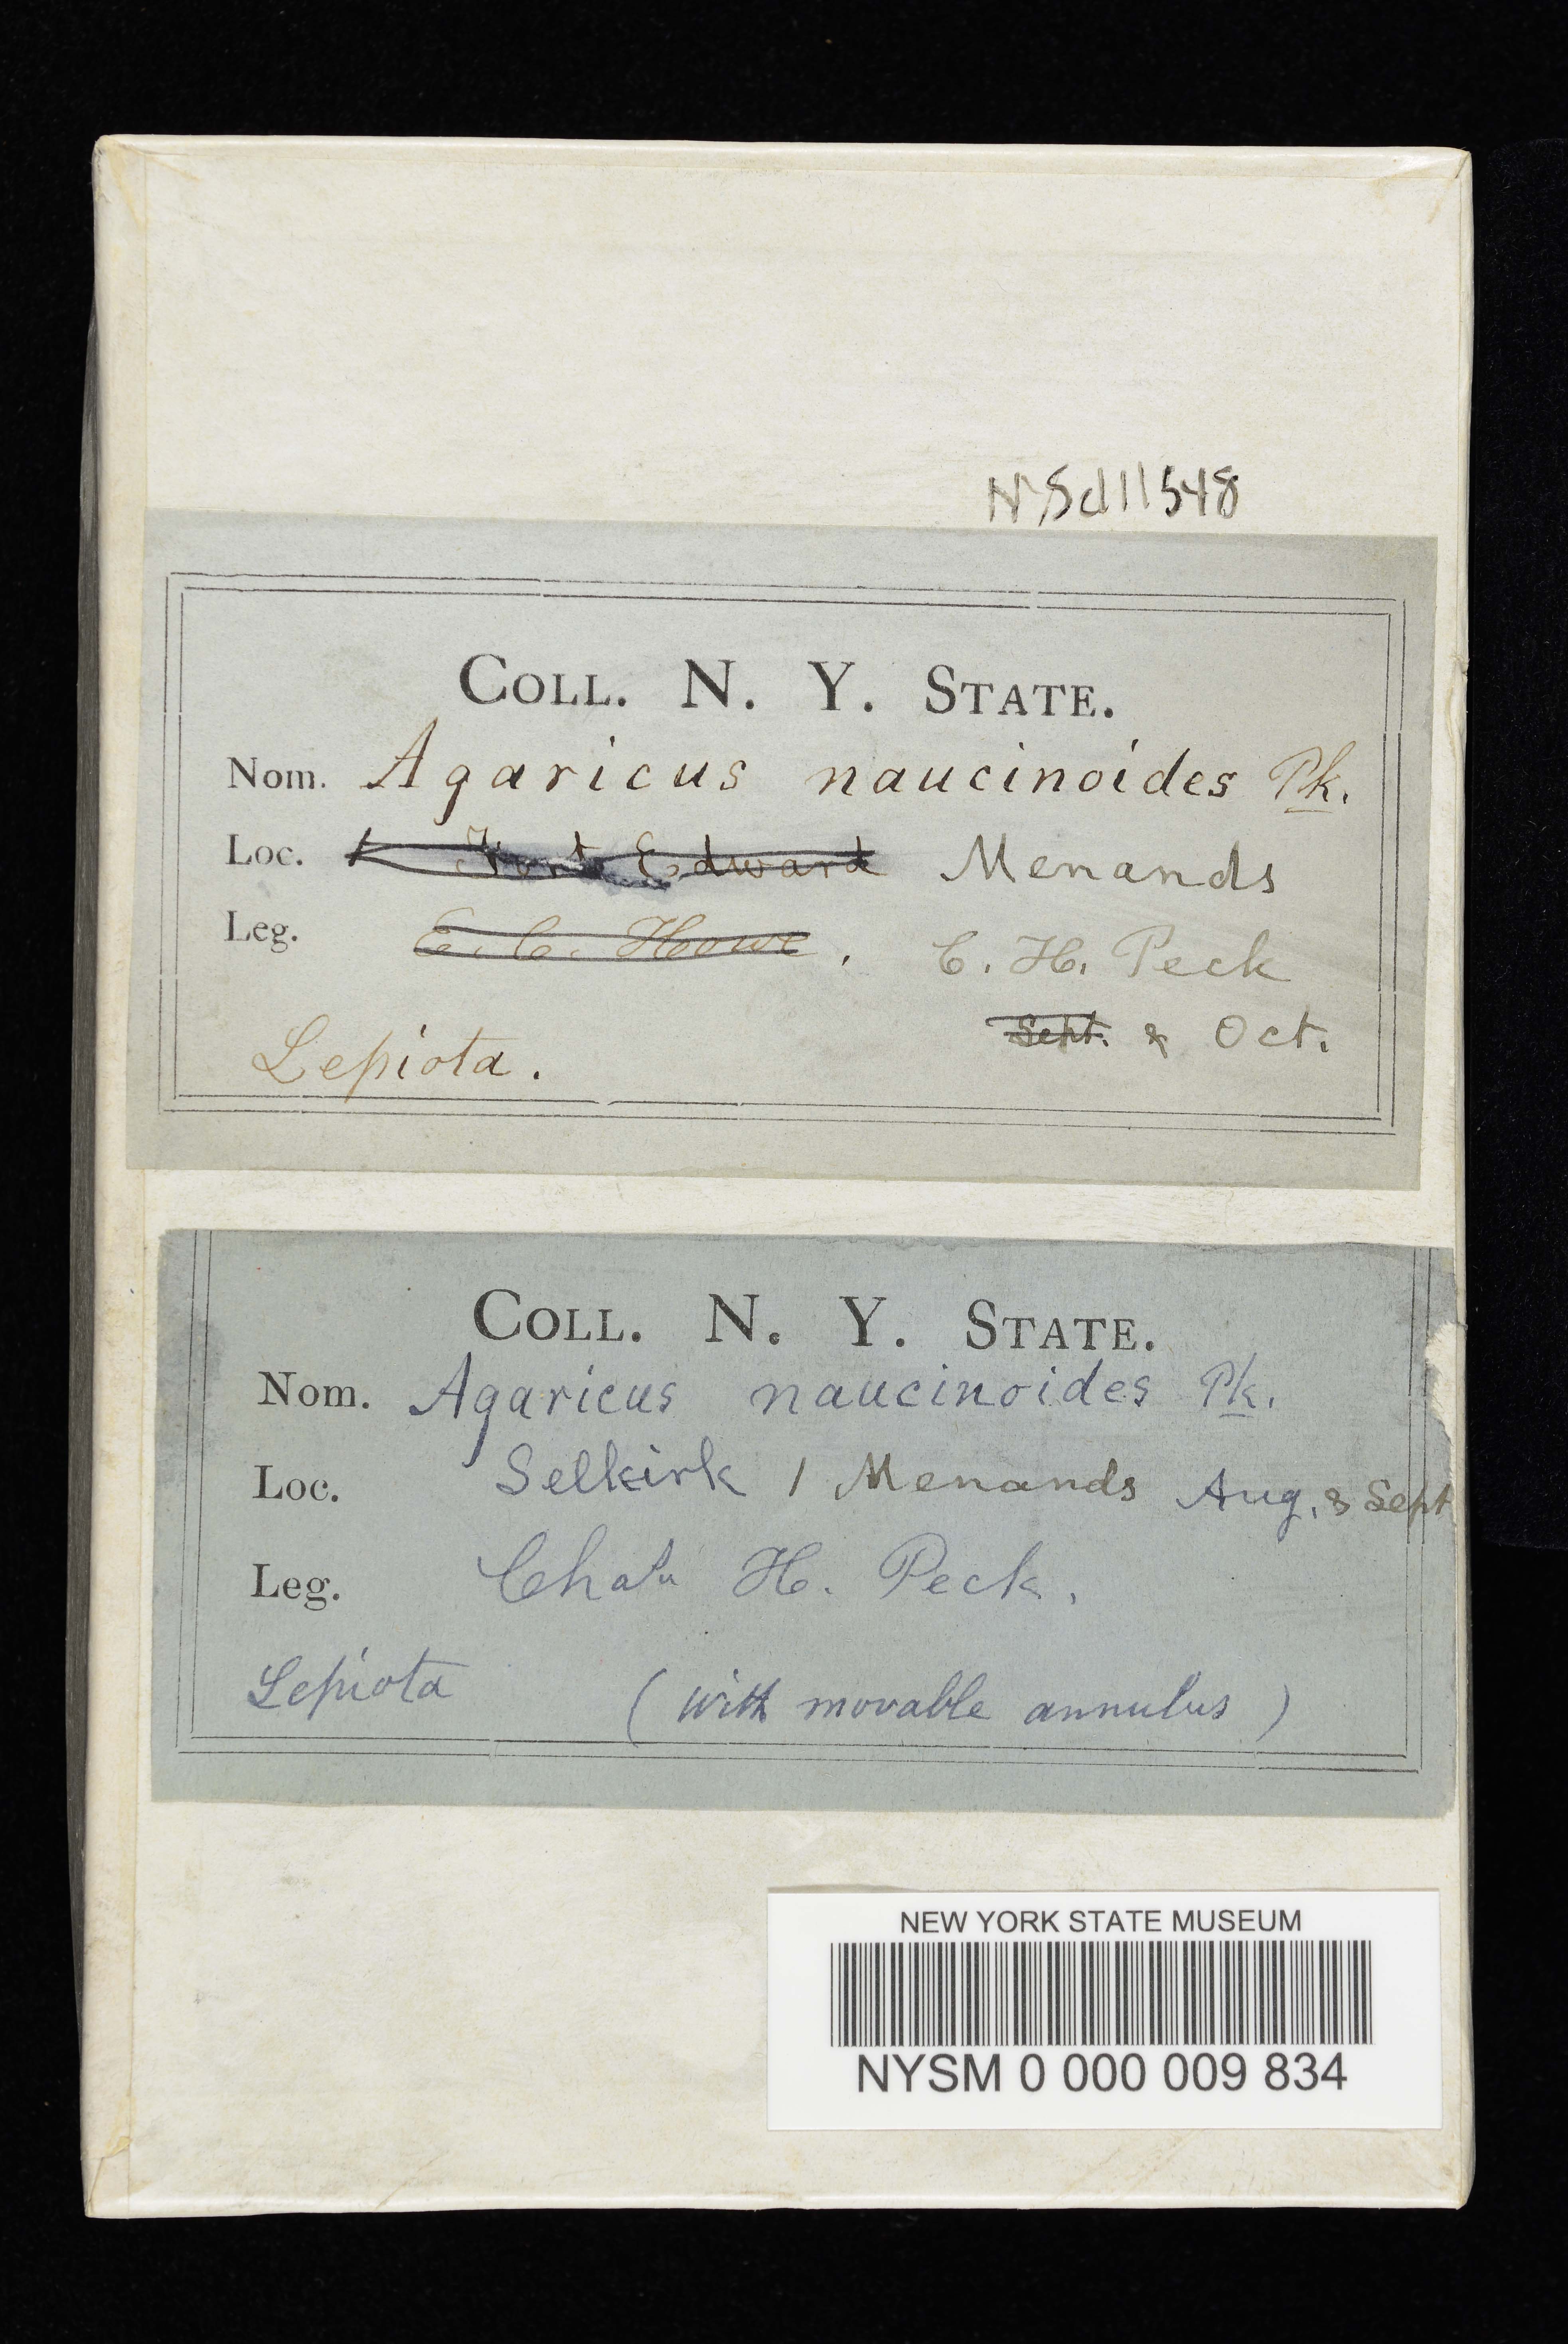 NYSd11548
COLL. N. Y. STATE.
Nom. Agaricus naucinoides Pk.
Loc. Fort Edward Menands
Leg. E. C. Howe. C. H. Peck
Sept. & Oct.
Lepiota.
COLL. N. Y. STATE.
Nom. Agaricus naucinoides Pk.
Loc. Selkirk / Menands Aug. & Sept
Leg. Chas H. Peck.
Lepiota (with movable annulus)
NEW YORK STATE MUSEUM
NYSM 0 000 009 834